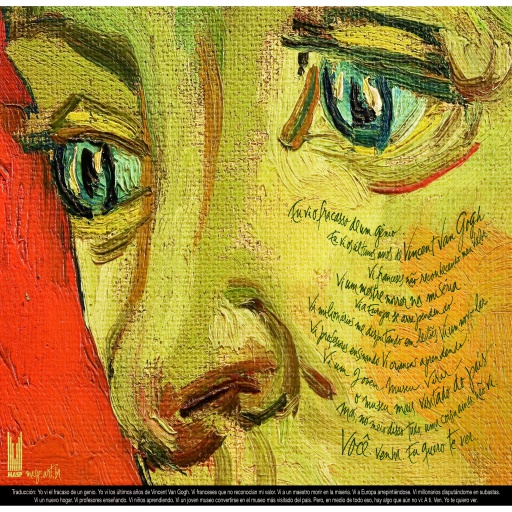 Eu vi o fracasso de um gênio
Eu vi os últimos anos de Vincent Van Gogh
Vi franceses não reconhecerem meu valor
Vi um mestre morrer na miséria
Vi a Europa se arrepender
Vi milionários me disputando em leilões. Vi um novo lar
Vi professores ensinando. Vi crianças aprendendo
Vi um jovem museu virar
o museu mais visitado do país
Mas, no meio disso tudo uma coisa não vi
Você. Venha. Eu quero te ver.
MASP masp.art.br
Traducción: Yo vi el fracaso de un genio. Yo vi los últimos años de Vincent Van Gogh. Vi franceses que no reconocían mi valor. Vi a un maestro morir en la miseria. Vi a Europa arrepintiéndose. Vi millonarios disputándome en subastas.
Vi un nuevo hogar. Vi profesores enseñando. Vi niños aprendiendo. Vi un joven museo convertirse en el museo más visitado del país. Pero, en medio de todo eso, hay algo que aún no vi: A ti. Ven. Yo te quiero ver.